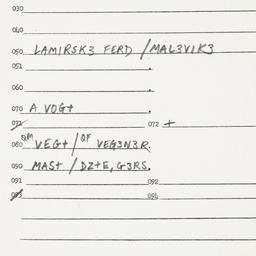 030
040
050 LAMIRSK3 FERD / MAL3VIK3
051 .
060 .
070 A VOGT .
071 072 +
080 QM VEG+ / QF VEG3N3R.
090 MAS+ / DZ+E, G3RS.
091 092
093 094